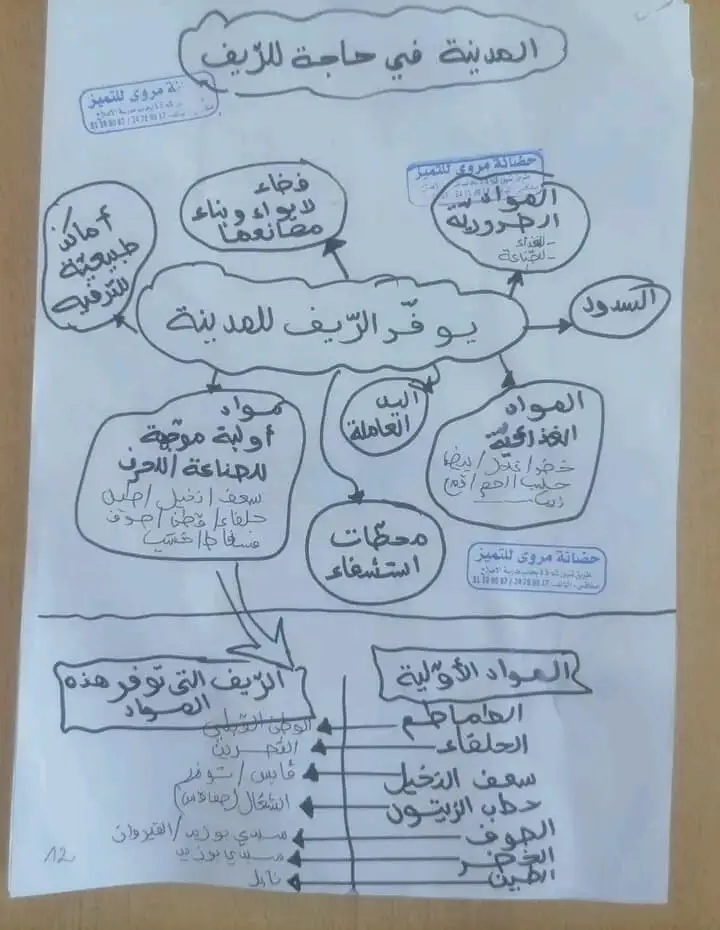 المدينة في حاجة للرّيف
حضانة مروى للتميز
فضاء
لايواء وبناء
مصانعها
حضانة مروى للتميز
المواد
الضرورية
- للغذاء
- للصناعة
أماكن
طبيعيّة
للترفيه
السدود
يوفّر الرّيف للمدينة
مواد
أولية موجّهة
للصناعة
سعف / نخيل /
حلفاء / قطن / صوف
خشب
اليد
العاملة
المواد
الغذائيّة
خضر / غلال / بيض
حليب / لحم / قمح
زيت
محطّات
استشفاء
حضانة مروى للتميز
المواد الأوّلية
الرّيف التي توفر هذه
المواد
الطماطم
الوطن القبلي
الحلفاء
القصرين
سعف النخيل
قابس / توزر
حطب الزيتون
الصوف
سيدي بوزيد / القيروان
الخضر
سيدي بوزيد
الطين
نابل
12